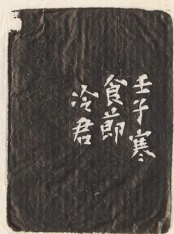 壬子寒
食節
冷君